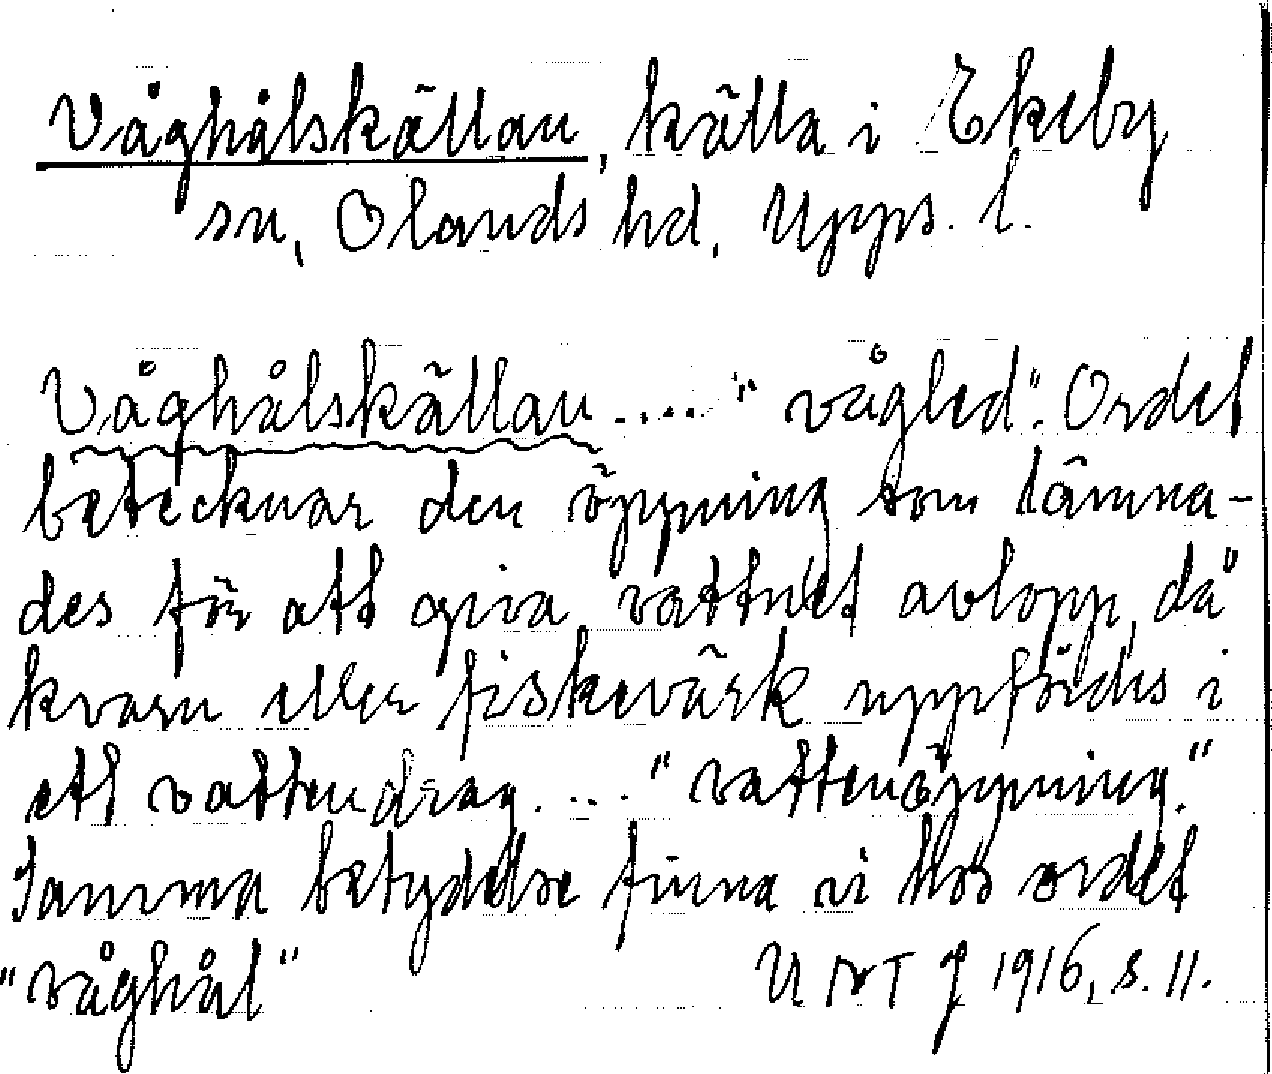 Våghålskällan, källa i Ekeby
sn, Olands hd, Upps. l.
Våghålskällan .... "vågled". Ordet
betecknar den öppning som lämna-
des för att giva vattnet avlopp, då
kvarn eller fiskevärk uppfördes i
ett vattendrag. ... "vattenöppning."
Samma betydelse finna vi hos ordet
"våghål" UNT J 1916, s. 11.